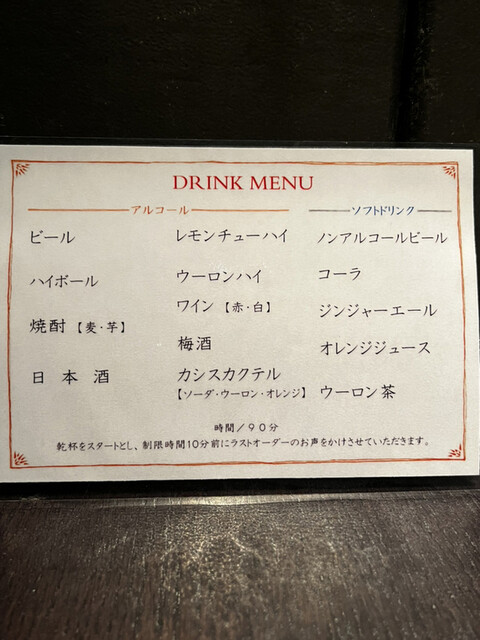 DRINK MENU
アルコール
ビール
ハイボール
焼酎【麦・芋】
日本酒
レモンチューハイ
ウーロンハイ
ワイン【赤・白】
梅酒
カシスカクテル
【ソーダ・ウーロン・オレンジ】
ソフトドリンク
ノンアルコールビール
コーラ
ジンジャーエール
オレンジジュース
ウーロン茶
時間／90分
乾杯をスタートとし、制限時間10分前にラストオーダーのお声をかけさせていただきます。